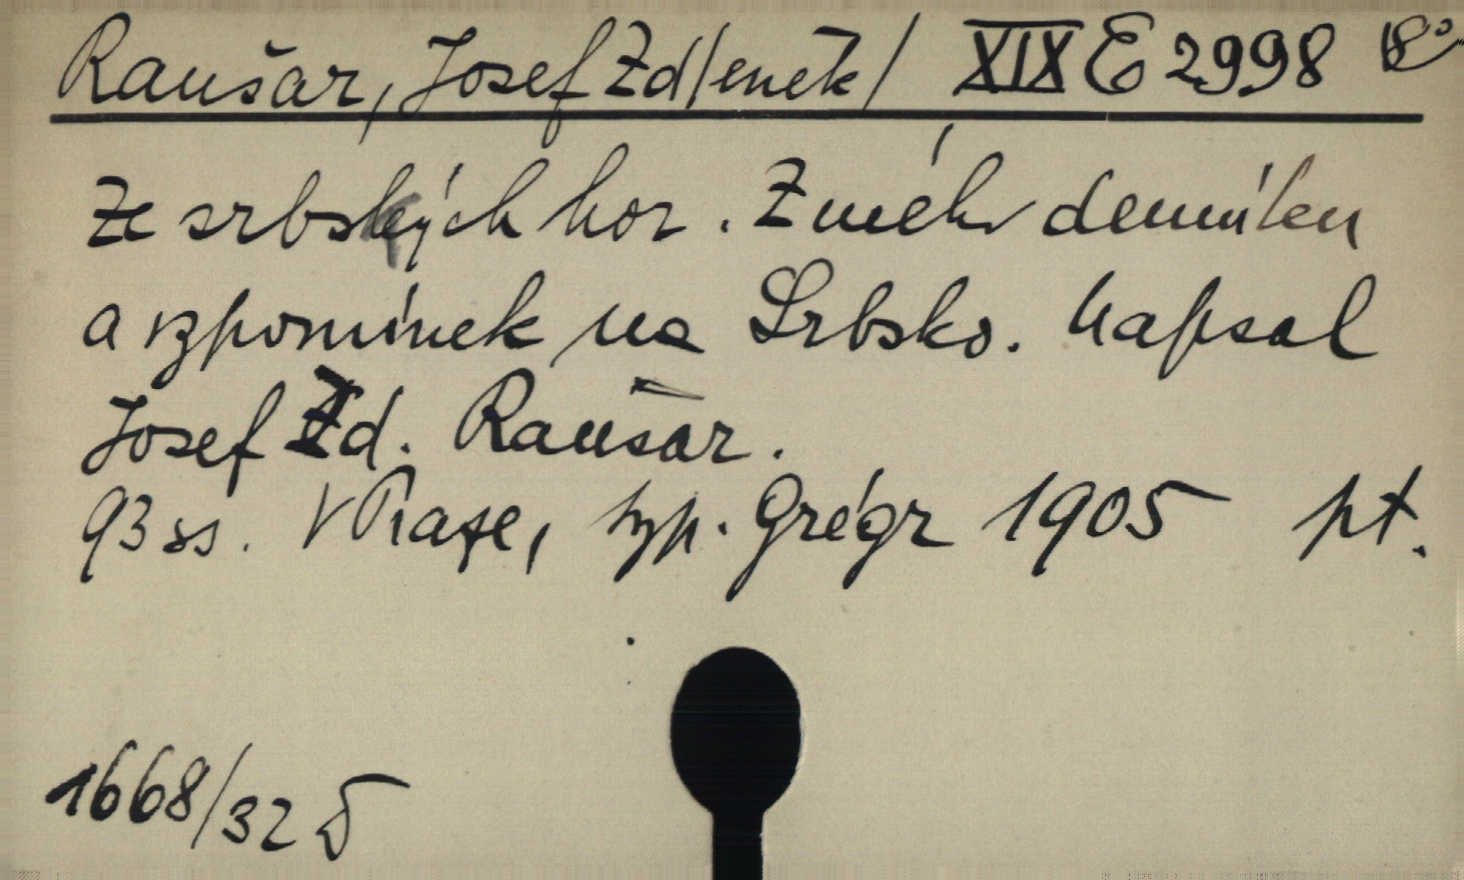 Raušar, Josef Zd/eněk/ XIX E 2998 8°
Ze srbských hor. Z mých
a vzpomínek na Srbsko. Napsal
Josef Zd. Raušar.
93 ss. V Praze, typ. Grégr 1905 pt.
1668/32 D